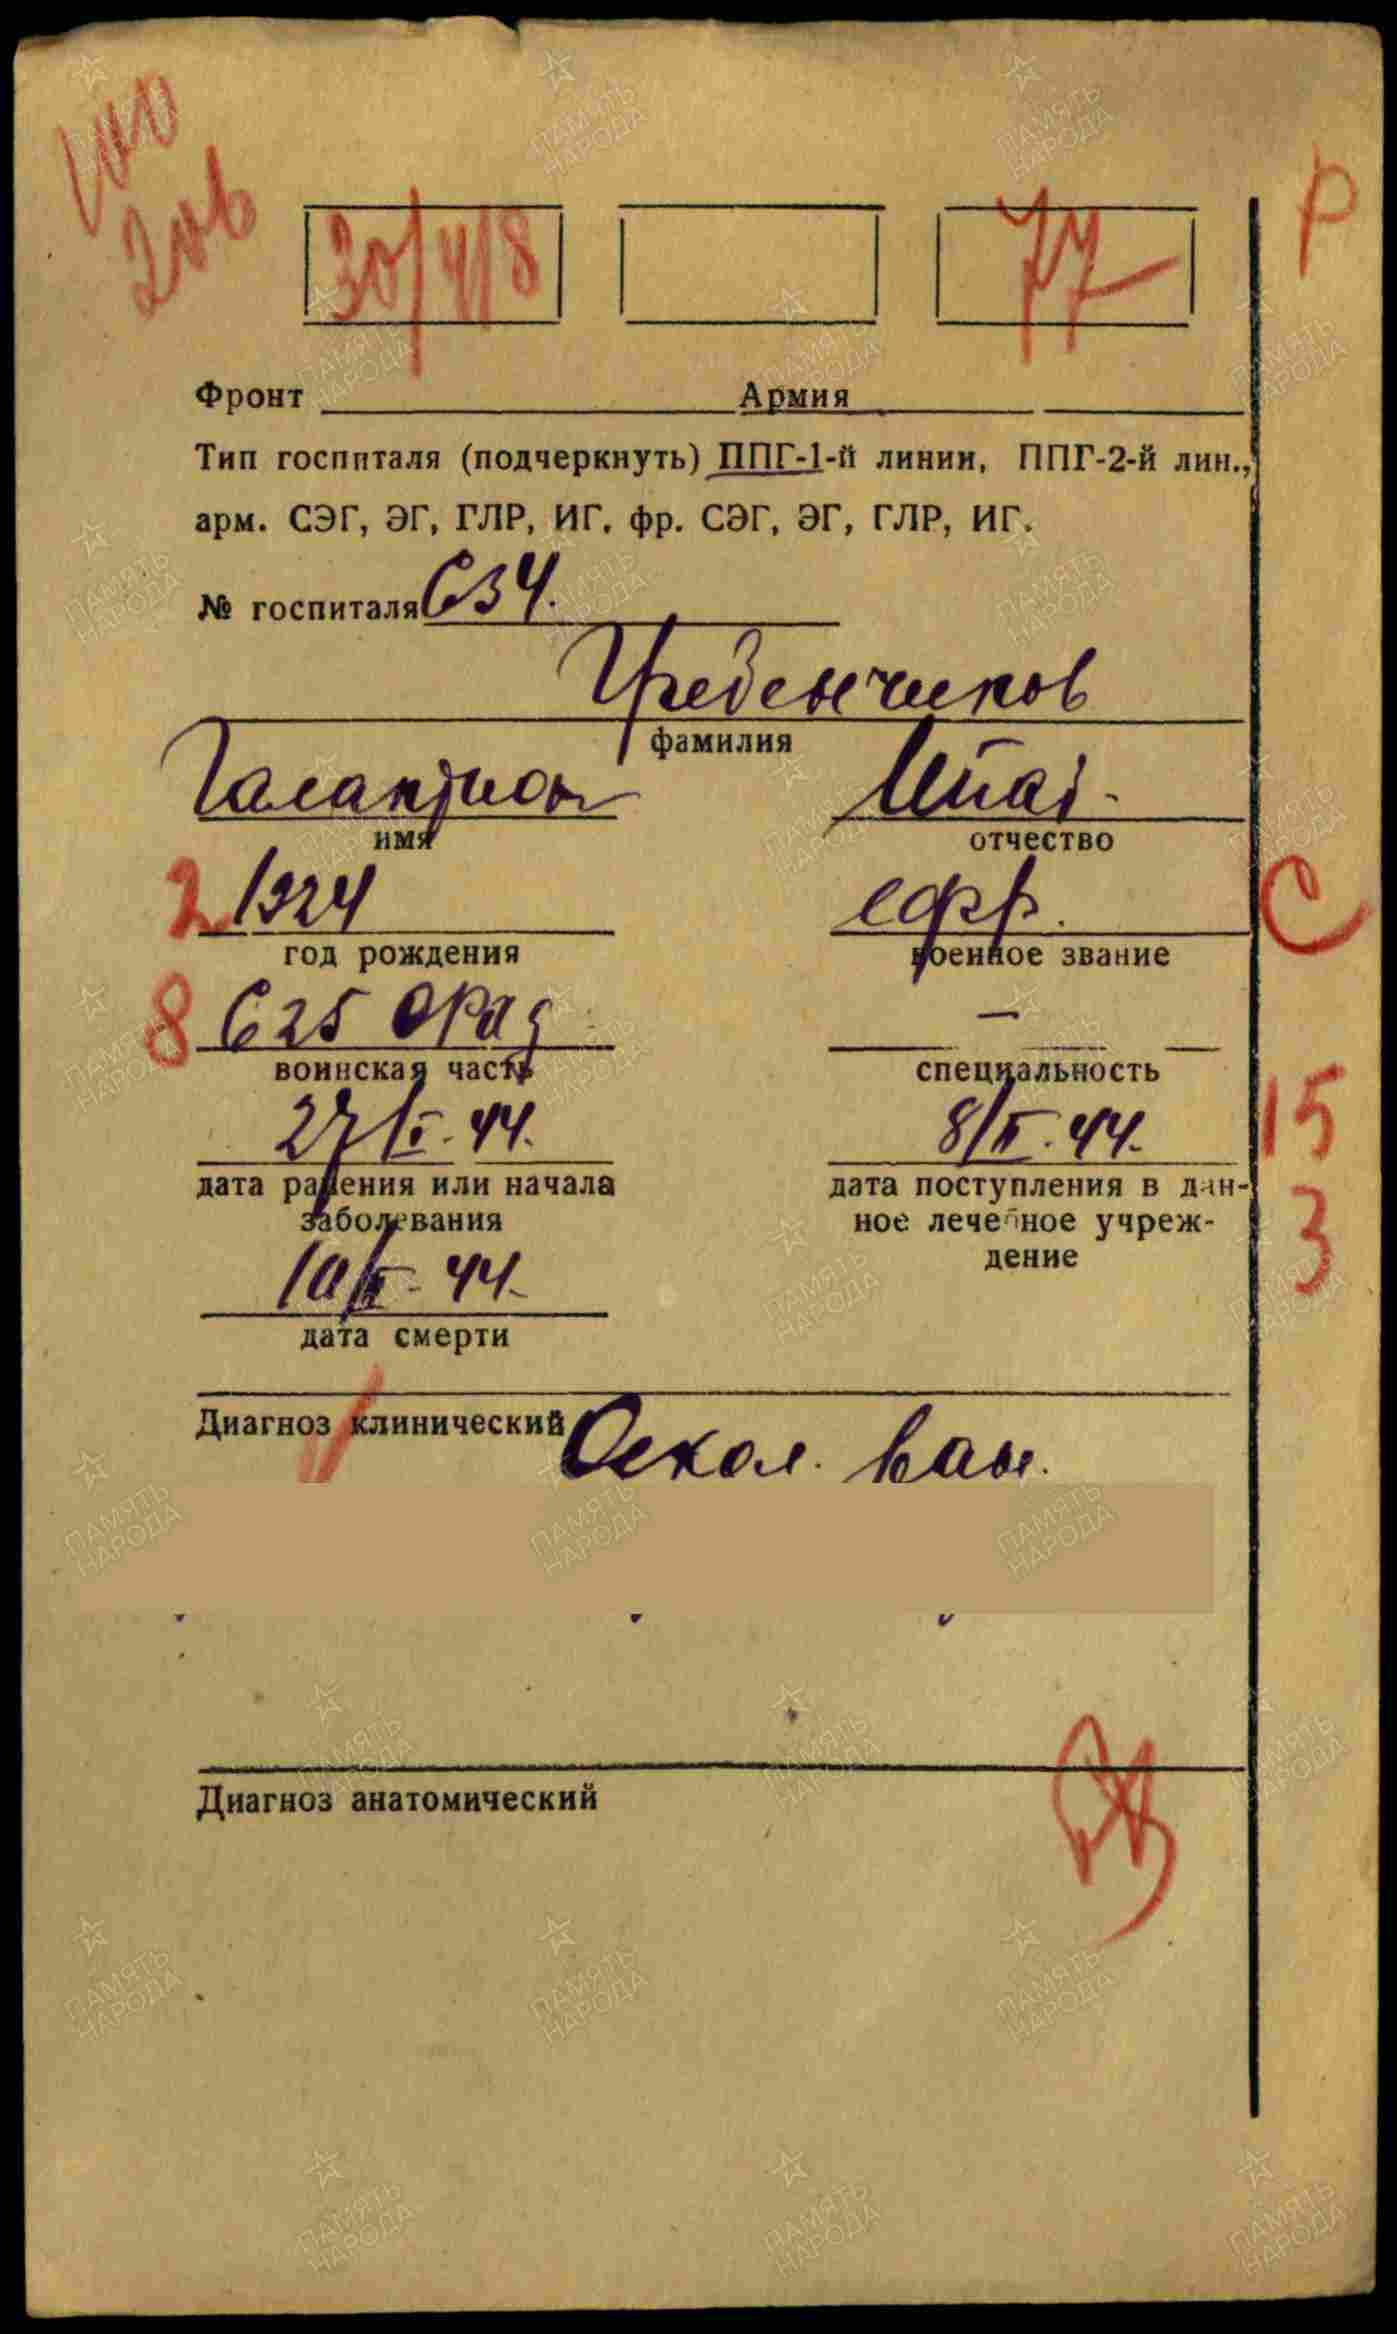 30/4/8 77 Р
Фронт Армия
Тип госпиталя (подчеркнуть) ППГ-1-й линии, ППГ-2-й лин.,
арм. СЭГ, ЭГ, ГЛР, ИГ, фр. СЭГ, ЭГ, ГЛР, ИГ.
№ госпиталя 634.
Гребенчиков
фамилия
Галактион Ипат-
имя отчество
2 1924 ефр. С
год рождения военное звание
8 625 —
воинская часть специальность
27/I. 44. 8/II. 44. 15
дата ранения или начала дата поступления в дан-
заболевания ное лечебное учреж- 3
дение
10/II- 44.
дата смерти
Диагноз клинический Оскол. ран.
Диагноз анатомический
ПАМЯТЬ
НАРОДА